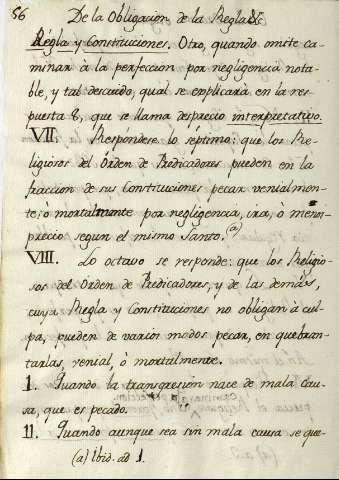 56 De la Obligacion de la Regla &c
Régla y Constituciones. Otro, quando omite ca-
minar à la perfeccion por negligencia nota-
ble, y tal descuido, qual se explicará en la res-
puesta 8, que se llama desprecio interpretativo.
VII. Respóndese lo septimo: que los Re-
ligiosos del Orden de Predicadores pueden en la
fraccion de sus Constituciones pecar venialmen-
te, ò mortalmente por negligencia, ira, ò menos-
precio segun el mismo Santo. (a)
VIII. Lo octavo se responde: que los Religio-
sos del Orden de Predicadores, y de las demás,
cuya Regla y Constituciones no obligan à cul-
pa, pueden de varios modos pecar, en quebran-
tarlas, venial, ò mortalmente.
I. Quando la transgresion nace de mala cau-
sa, que es pecado.
II. Quando aunque sea sin mala causa se que-
(a) Ibid. ad 1.